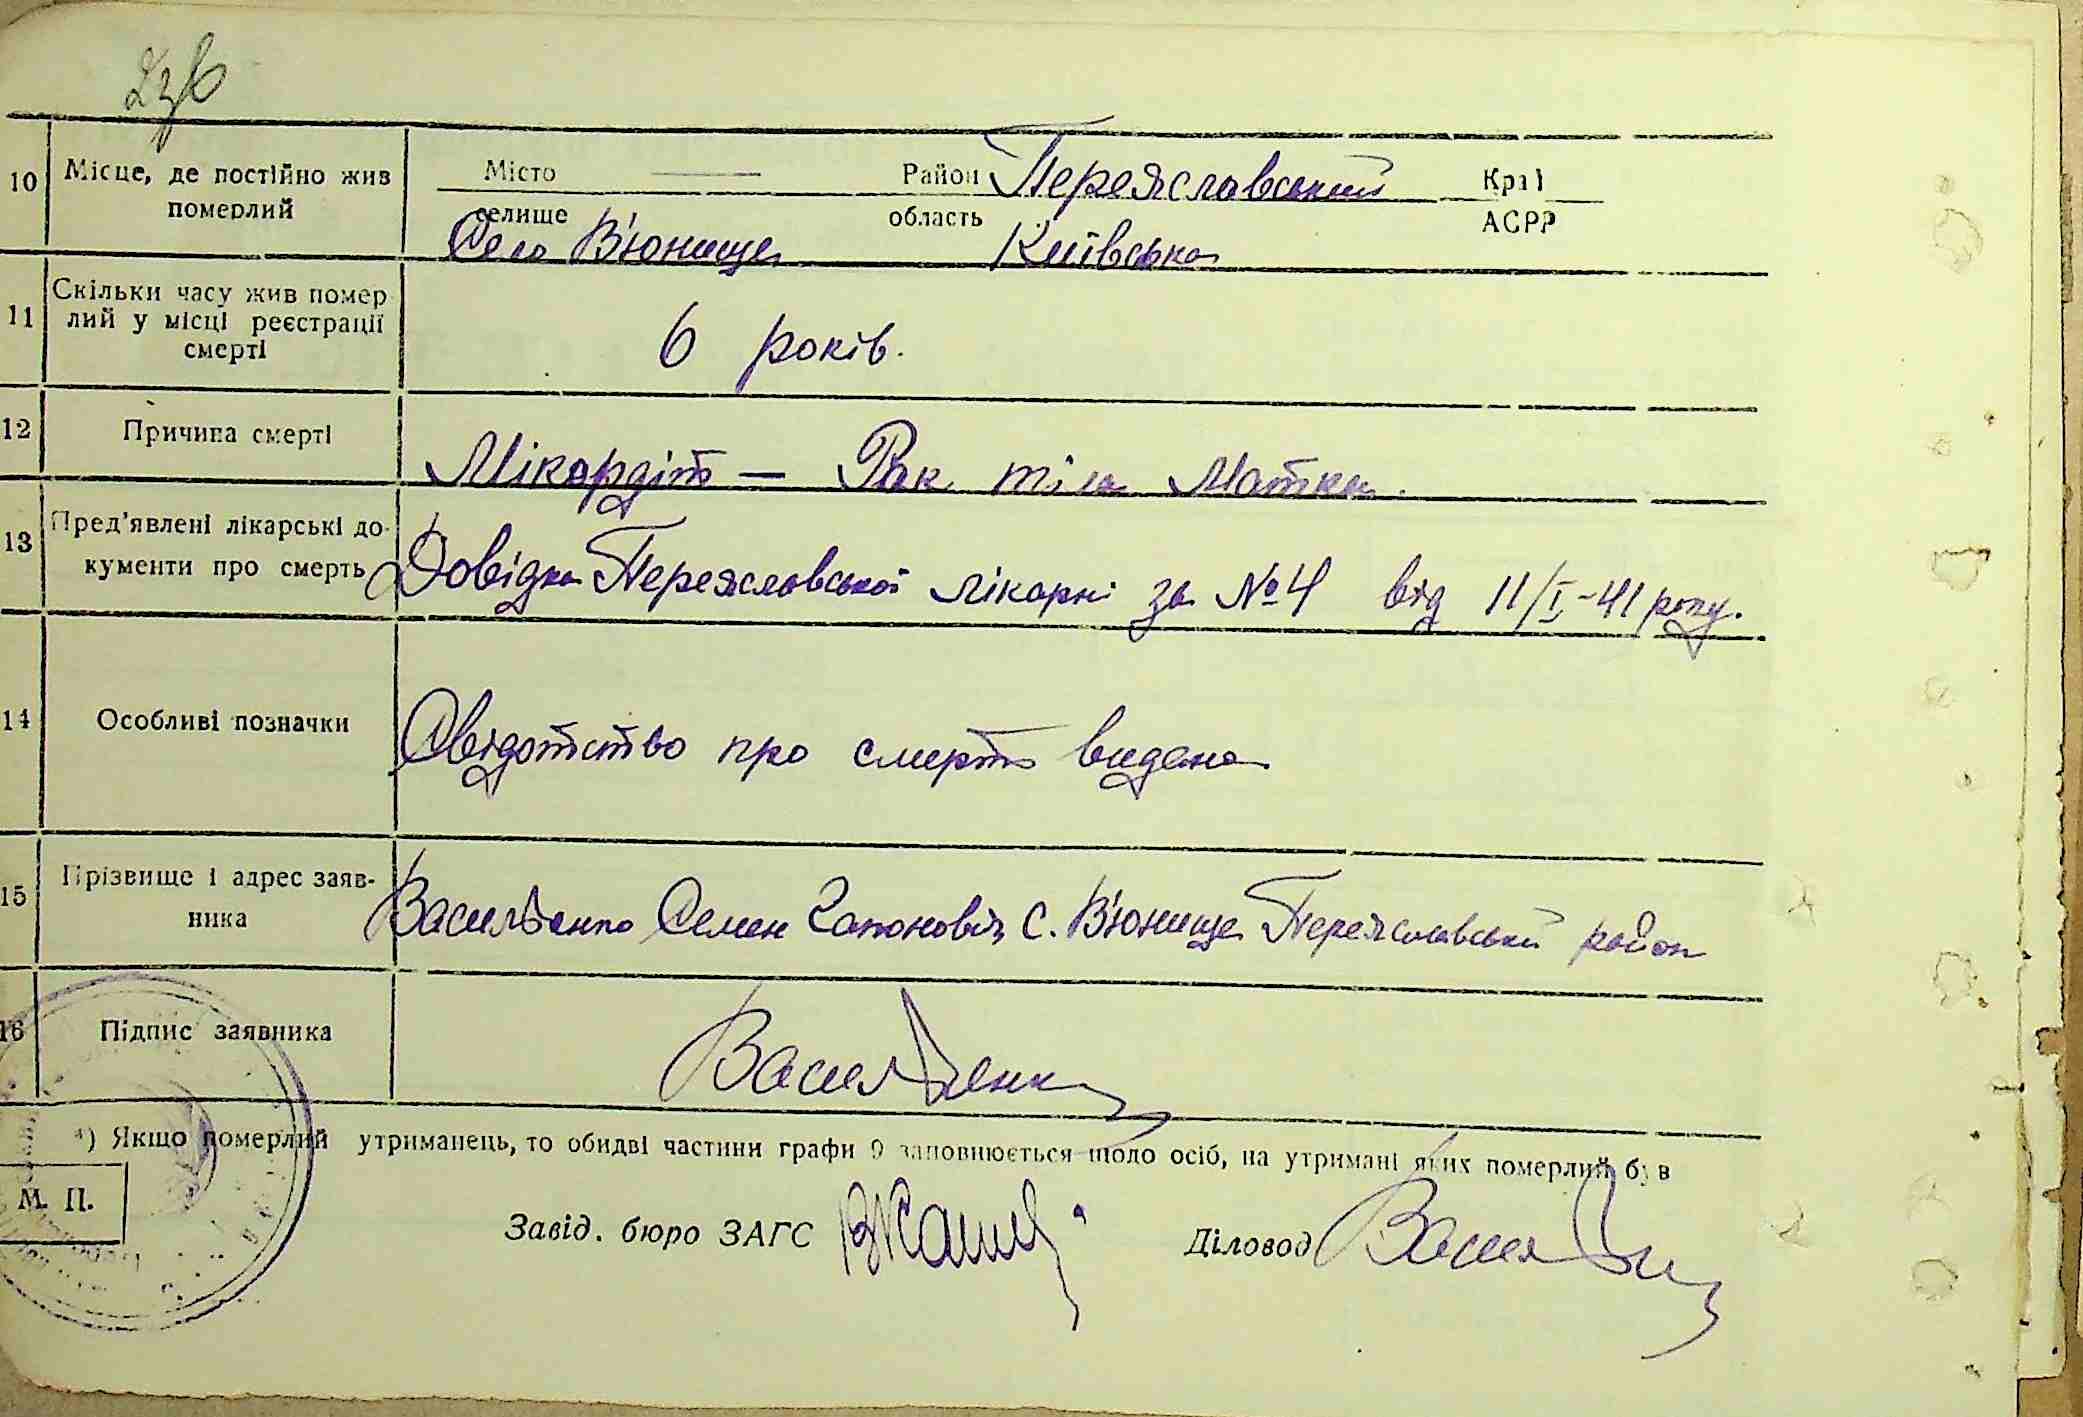 10 Місце, де постійно жив Місто Район Переяславський Краї
померлий селище область АСРР
Село В'юнище Київська
11 Скільки часу жив помер
лий у місці реєстрації
смерті
6 років.
12 Причина смерті
Мікордіт — Рак тіла Матки.
13 Пред'явлені лікарські до-
кументи про смерть
Довідка Переяславської лікарні за №4 від 11/I-41 року.
14 Особливі позначки
Свідотство про смерть видано
15 Прізвище і адрес заяв-
ника
Василенко Семен с. В'юнище Переяславський район
16 Підпис заявника
Василенко
*) Якщо померлий утриманець, то обидві частини графи 9 заповнюється щодо осіб, на утримані яких померлий був
М. П.
Завід. бюро ЗАГС Діловод